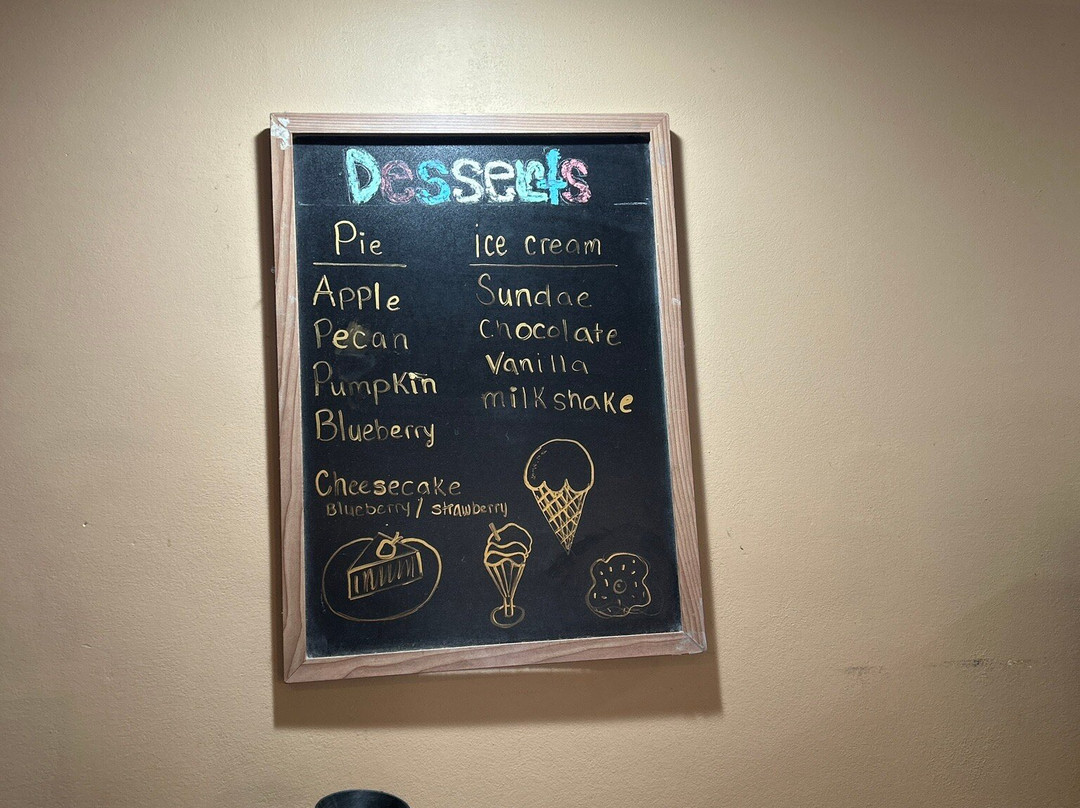 Desserts
Pie
Apple
Pecan
Pumpkin
Blueberry
Cheesecake
Blueberry / strawberry
ice cream
Sundae
Chocolate
Vanilla
milkshake